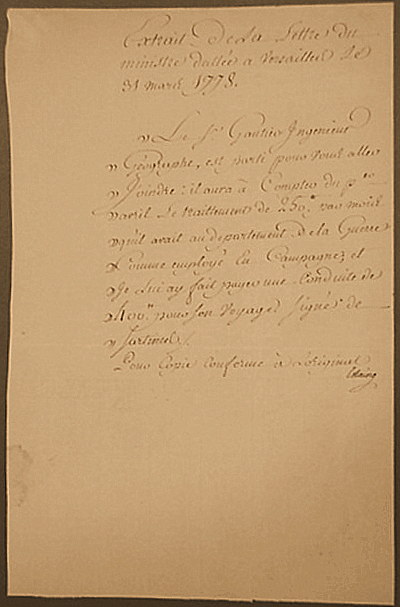 Extrait De La Lettre du
ministre dattée a Versailles Le
31 mars 1778.
» Le Sr. Gautier Ingenieur
» Géographe, est parti pour vous aller
» Joindre; il aura à Compter du pr.
» avril Le traittement de 250.# par mois
» qu'il avait au departement de la Guerre
» Comme employé En Campagne, et
» Je Lui ay fait payer une Conduite de
» 400.# pour son Voyage. Signé. de
» Sartine /.
Pour Copie Conforme à L'original
Estaing